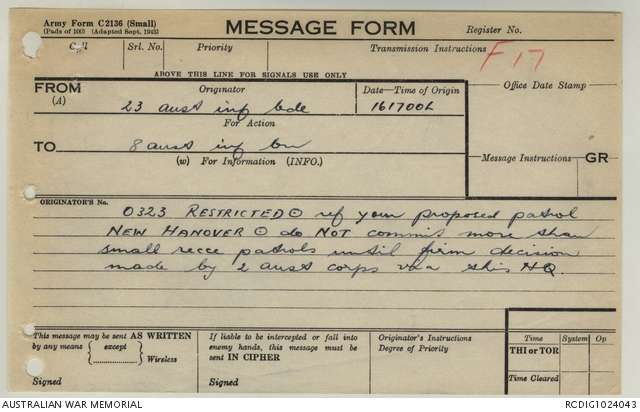 Army Form C2136 (Small)
(Pads of 100) (Adapted Sept. 1943)
MESSAGE FORM
Register No.
Call
Srl. No.
Priority
Transmission Instructions
F17
ABOVE THIS LINE FOR SIGNALS USE ONLY
FROM
(A)
Originator
Date—Time of Origin
Office Date Stamp
23 aust inf bde
161700L
For Action
TO
8 aust inf bn
(w) For Information (INFO.)
Message Instructions
GR
ORIGINATOR'S No.
0323 RESTRICTED ⊙ ref your proposed patrol
NEW HANOVER ⊙ do NOT commit more than
small recce patrols until firm decision
made by 2 aust corps via this HQ.
This message may be sent AS WRITTEN
by any means { except } Wireless
Signed
If liable to be intercepted or fall into
enemy hands, this message must be
sent IN CIPHER
Signed
Originator's Instructions
Degree of Priority
Time
System
Op
THI or TOR
Time Cleared
AUSTRALIAN WAR MEMORIAL
RCDIG1024043